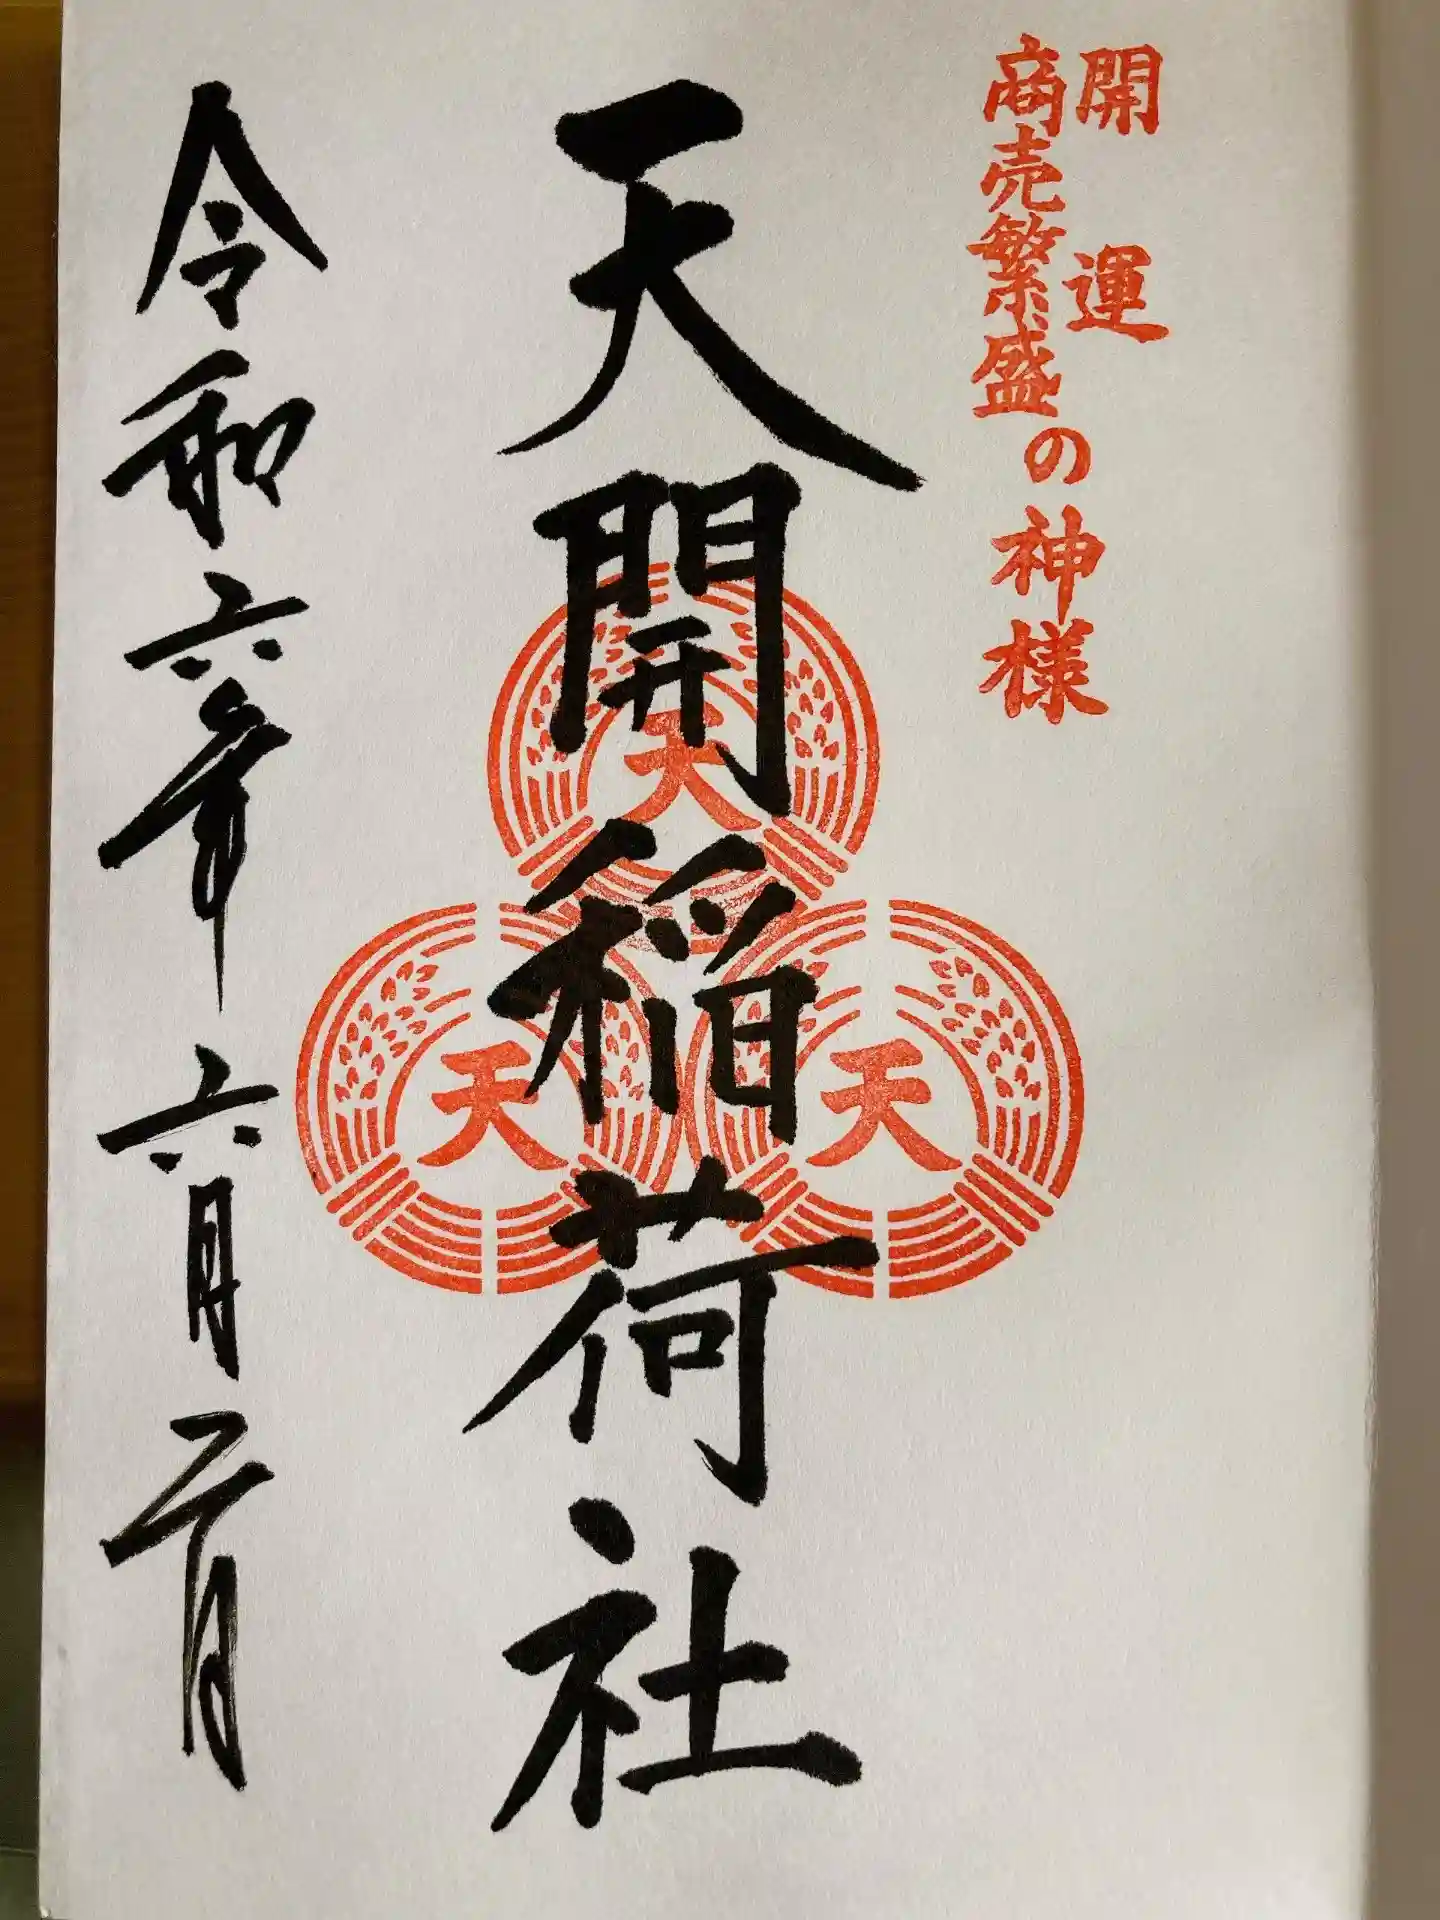 開運
商売繁盛
の神様
天開稲荷社
天
天
天
令和六年六月二日